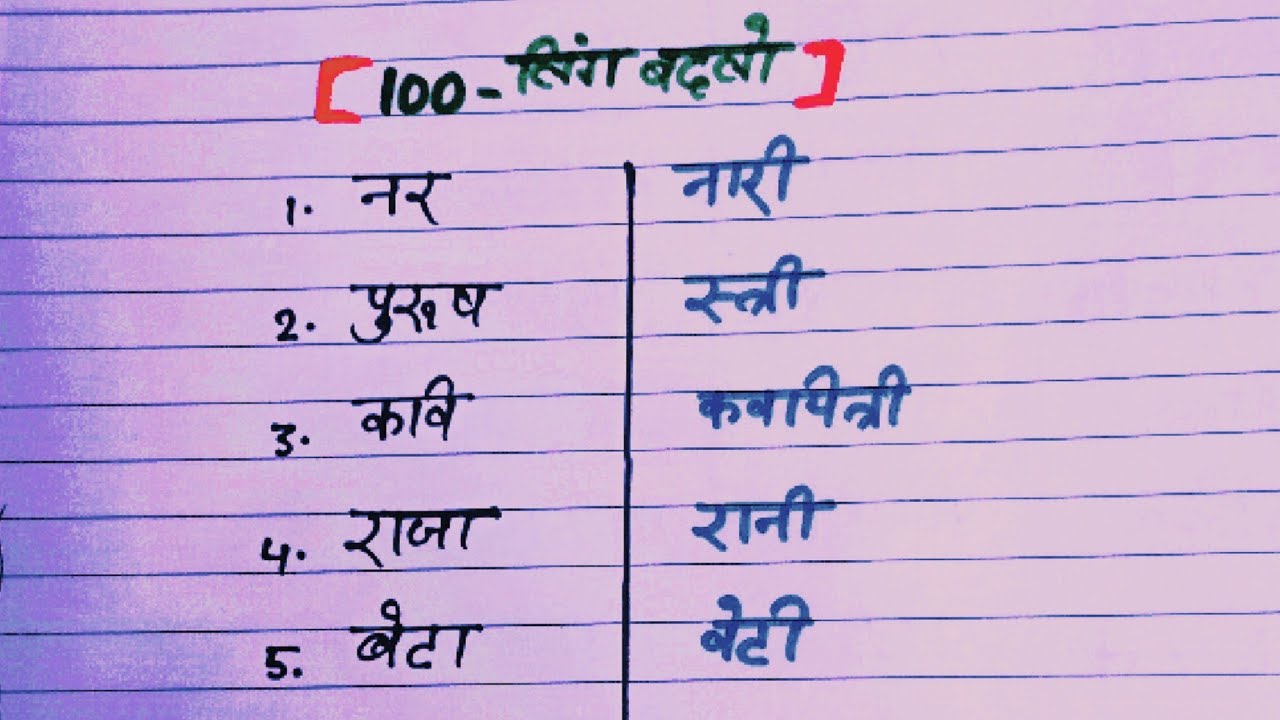 [100-लिंग बदलो]
1. नर नारी
2. पुरूष स्त्री
3. कवि कवायित्री
4. राजा रानी
5. बेटा बेटी